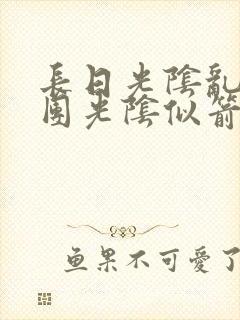 長日光陰亂
團光陰似箭
鱼果不可愛了